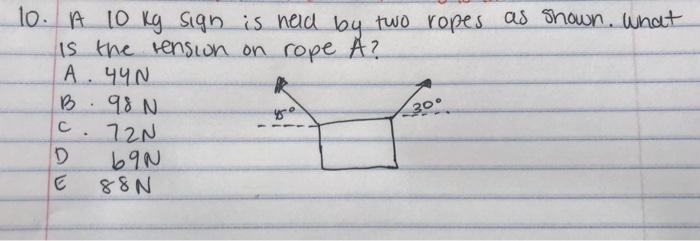 10. A 10 kg sign is held by two ropes as shown. What
is the tension on rope A?
A. 44N
B. 98 N
C. 72N
D 69N
E 88N
30°.